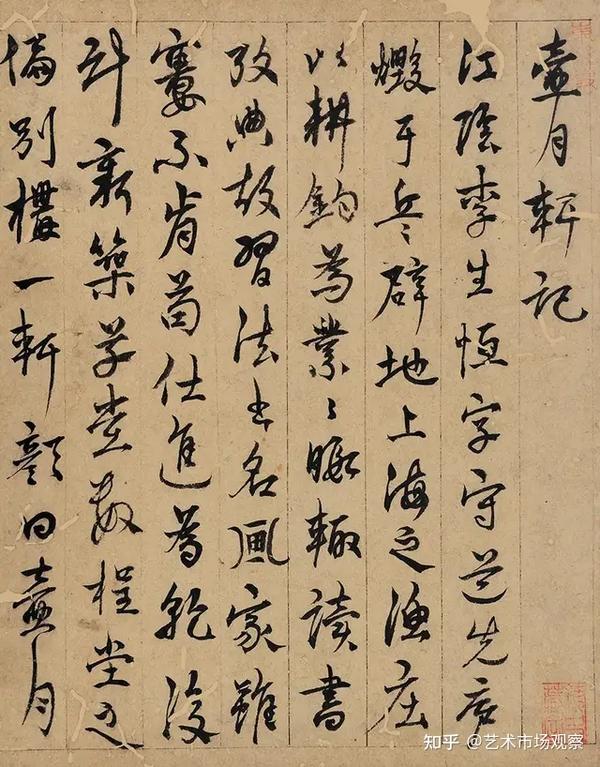 壺月軒記
江陰李生恒字守道先廬
燬于兵辟地上海之漁庄
以耕釣為業〻暇輒讀書
攷典故習法书名画家雖
窶不肯苟仕進為乾沒
計新築草堂數楹堂之
偏別構一軒顏曰壺月
知乎 @艺术市场观察